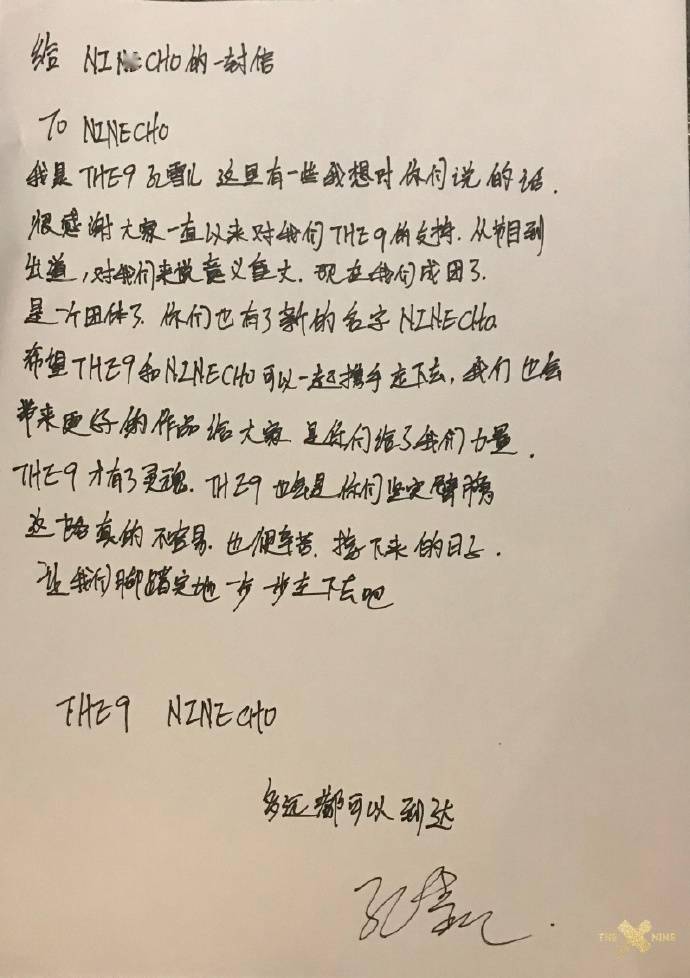 给 NINECHO的一封信
TO NINECHO
我是THE9 孔雪儿 这里有一些我想对你们说的话.
很感谢大家一直以来对我们THE9的支持.从节目到
出道,对我们来说意义重大.现在我们成团了.
是一个团体了.你们也有了新的名字NINECHO.
希望THE9和NINECHO可以一起携手走下去,我们也会
带来更好的作品给大家 是你们给了我们力量.
THE9才有了灵魂.THE9也会是你们坚实臂膀
这一路真的不容易.也很辛苦.接下来的日子.
让我们脚踏实地一步一步走下去吧
THE9 NINECHO
多远都可以到达
孔雪儿.
THE NINE